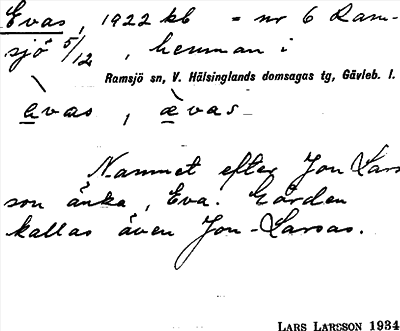 Evas, 1922 kb = nr 6 Ram-
sjö 5/12, hemman i
Ramsjö sn, V. Hälsinglands domsagas tg, Gävleb. l.
èvas, æ̀vas
Namnet efter Jon Lars
son änka, Eva. Gården
kallas även Jon-Larsas.
LARS LARSSON 1934